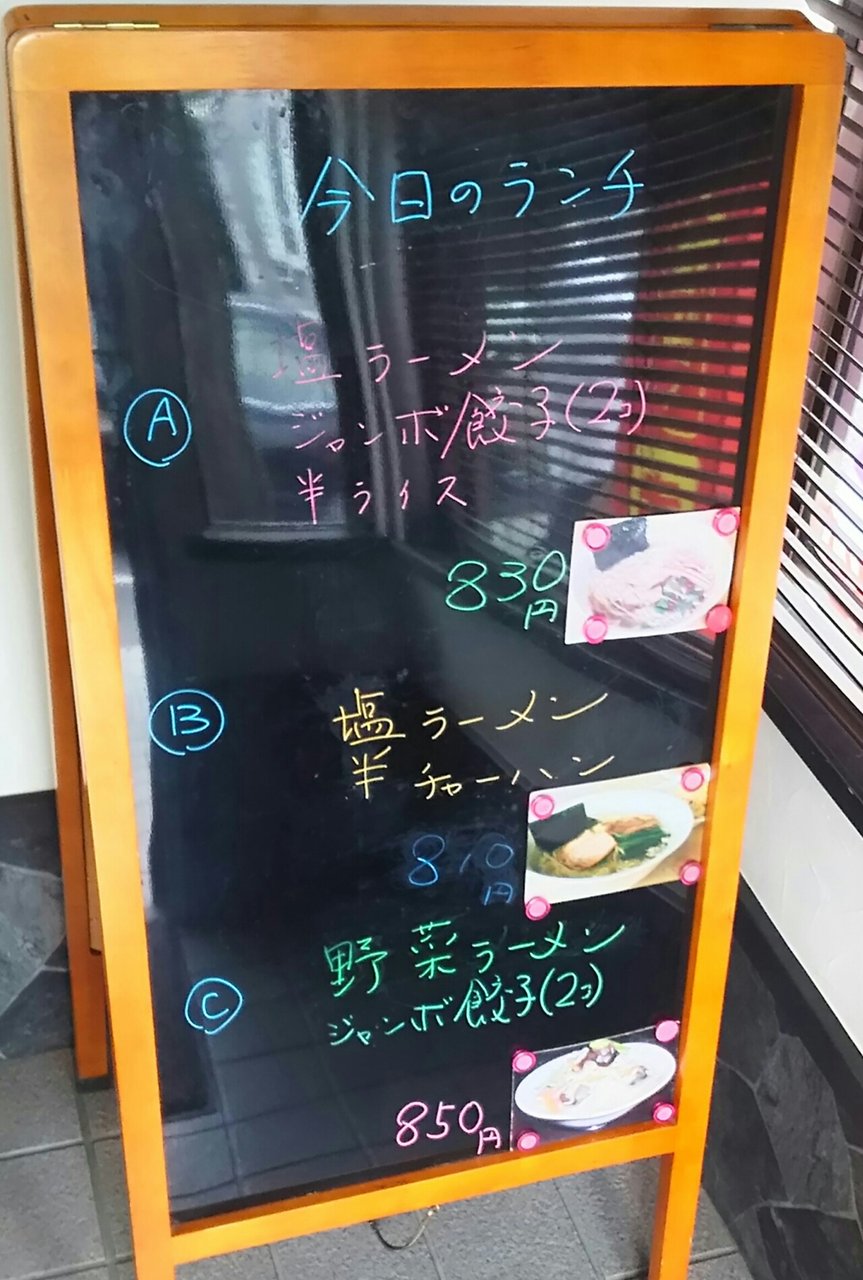 今日のランチ
Ⓐ
塩ラーメン
ジャンボ餃子(2コ)
半ライス
830円
Ⓑ
塩ラーメン
半チャーハン
810円
Ⓒ
野菜ラーメン
ジャンボ餃子(2コ)
850円